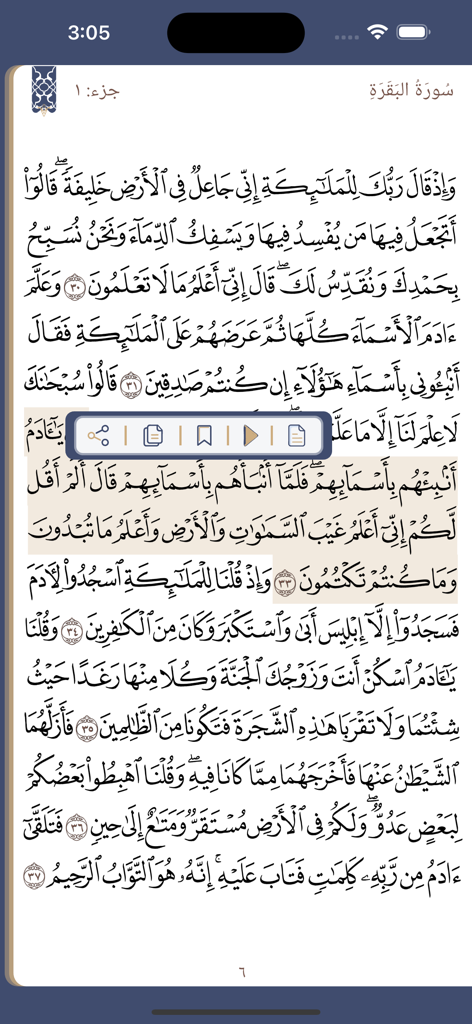 3:05
سُورَةُ البَقَرَةِ
جزء: ١
وَإِذْ قَالَ رَبُّكَ لِلْمَلَٰٓئِكَةِ إِنِّي جَاعِلٌ فِي الْأَرْضِ خَلِيفَةً ۖ قَالُوٓا۟
أَتَجْعَلُ فِيهَا مَن يُفْسِدُ فِيهَا وَيَسْفِكُ الدِّمَآءَ وَنَحْنُ نُسَبِّحُ
بِحَمْدِكَ وَنُقَدِّسُ لَكَ ۖ قَالَ إِنِّيٓ أَعْلَمُ مَا لَا تَعْلَمُونَ ٣٠ وَعَلَّمَ
ءَادَمَ الْأَسْمَآءَ كُلَّهَا ثُمَّ عَرَضَهُمْ عَلَى الْمَلَٰٓئِكَةِ فَقَالَ
أَنۢبِـُٔونِي بِأَسْمَآءِ هَٰٓؤُلَآءِ إِن كُنتُمْ صَٰدِقِينَ ٣١ قَالُوا۟ سُبْحَٰنَكَ
لَا عِلْمَ لَنَآ إِلَّا مَا يَٰٓـَٔادَمُ
أَنۢبِئْهُم بِأَسْمَآئِهِمْ ۖ فَلَمَّآ أَنۢبَأَهُم بِأَسْمَآئِهِمْ قَالَ أَلَمْ أَقُل
لَّكُمْ إِنِّيٓ أَعْلَمُ غَيْبَ السَّمَٰوَٰتِ وَالْأَرْضِ وَأَعْلَمُ مَا تُبْدُونَ
وَمَا كُنتُمْ تَكْتُمُونَ ٣٣ وَإِذْ قُلْنَا لِلْمَلَٰٓئِكَةِ اسْجُدُوا۟ لِـَٔادَمَ
فَسَجَدُوٓا۟ إِلَّآ إِبْلِيسَ أَبَىٰ وَاسْتَكْبَرَ وَكَانَ مِنَ الْكَٰفِرِينَ ٣٤ وَقُلْنَا
يَٰٓـَٔادَمُ اسْكُنْ أَنتَ وَزَوْجُكَ الْجَنَّةَ وَكُلَا مِنْهَا رَغَدًا حَيْثُ
شِئْتُمَا وَلَا تَقْرَبَا هَٰذِهِ الشَّجَرَةَ فَتَكُونَا مِنَ الظَّٰلِمِينَ ٣٥ فَأَزَلَّهُمَا
الشَّيْطَٰنُ عَنْهَا فَأَخْرَجَهُمَا مِمَّا كَانَا فِيهِ ۖ وَقُلْنَا اهْبِطُوا۟ بَعْضُكُمْ
لِبَعْضٍ عَدُوٌّ ۖ وَلَكُمْ فِي الْأَرْضِ مُسْتَقَرٌّ وَمَتَٰعٌ إِلَىٰ حِينٍ ٣٦ فَتَلَقَّىٰٓ
ءَادَمُ مِن رَّبِّهِۦ كَلِمَٰتٍ فَتَابَ عَلَيْهِ ۚ إِنَّهُۥ هُوَ التَّوَّابُ الرَّحِيمُ ٣٧
٦